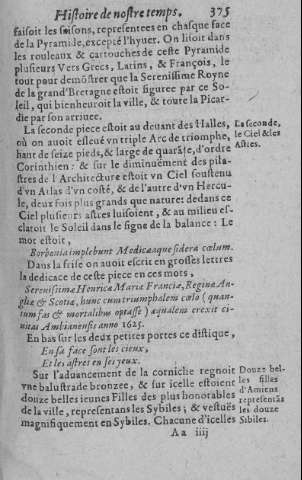 Histoire de nostre temps. 375
faisoit les saisons, representees en chasque face
de la Pyramide, excepté l'hyuer. On lisoit dans
les rouleaux & cartouches de ceste Pyramide
plusieurs Vers Grecs, Latins, & François, le
tout pour démonstrer que la Serenissime Royne
de la grand'Bretagne estoit figuree par ce So-
leil, qui bienheuroit la ville, & toute la Picar-
die par son arriuee.
La seconde piece estoit au deuant des Halles,
où on auoit esleué vn triple Arc de triomphe,
haut de seize pieds, & large de quarãte, d'ordre
Corinthien : & sur le diminuement des pila-
stres de l'Architecture estoit vn Ciel soustenu
d'vn Atlas d'vn costé, & de l'autre d'vn Hercu-
le, deux fois plus grands que nature: dedans ce
Ciel plusieurs astres luisoient, & au milieu es-
clatoit le Soleil dans le signe de la balance : Le
mot estoit,
Borbonia implebunt Medicaque sidera cœlum.
Dans la frise on auoit escrit en grosses lettres
la dedicace de ceste piece en ces mots,
Serenissimæ Henricæ Mariæ Franciæ, Reginæ An-
gliæ & Scotiæ, hunc cum triumphalem cœlo (quan-
tum fas & mortalibus optasse) æqualem erexit ci-
uitas Ambianensis anno 1625.
En bas sur les deux petites portes ce distique,
En sa face sont les cieux,
Et les astres en ses yeux.
Sur l'aduancement de la corniche regnoit
vne balustrade bronzee, & sur icelle estoient
douze belles ieunes Filles des plus honorables
de la ville, representans les Sybiles ; & vestuës
magnifiquement en Sybiles. Chacune d'icelles
Aa iiij
La seconde,
le Ciel & les
Astres.
Douze bel-
les filles
d'Amiens
representãs
les douze
Sibiles.